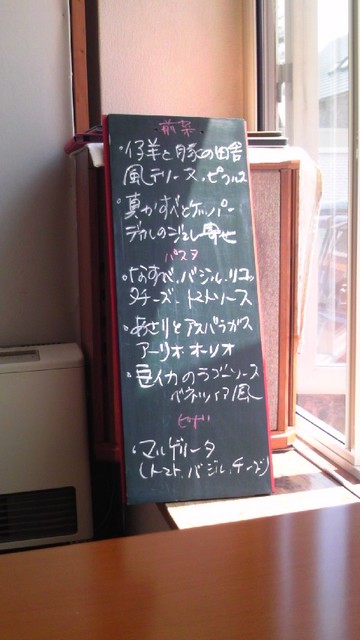 前菜
・仔羊と豚の田舎
風テリース・ピクルス
・真かすべとケッパー
のジュレ寄せ
パスタ
・なすべ・バジル・リコッ
タチーズ・トマトソース
・あさりとアスパラガス
アーリオ・オーリオ
・イカのラグーソース
ベネツィア風
ピザ
・マルゲリータ
(トマト、バジル、チーズ)